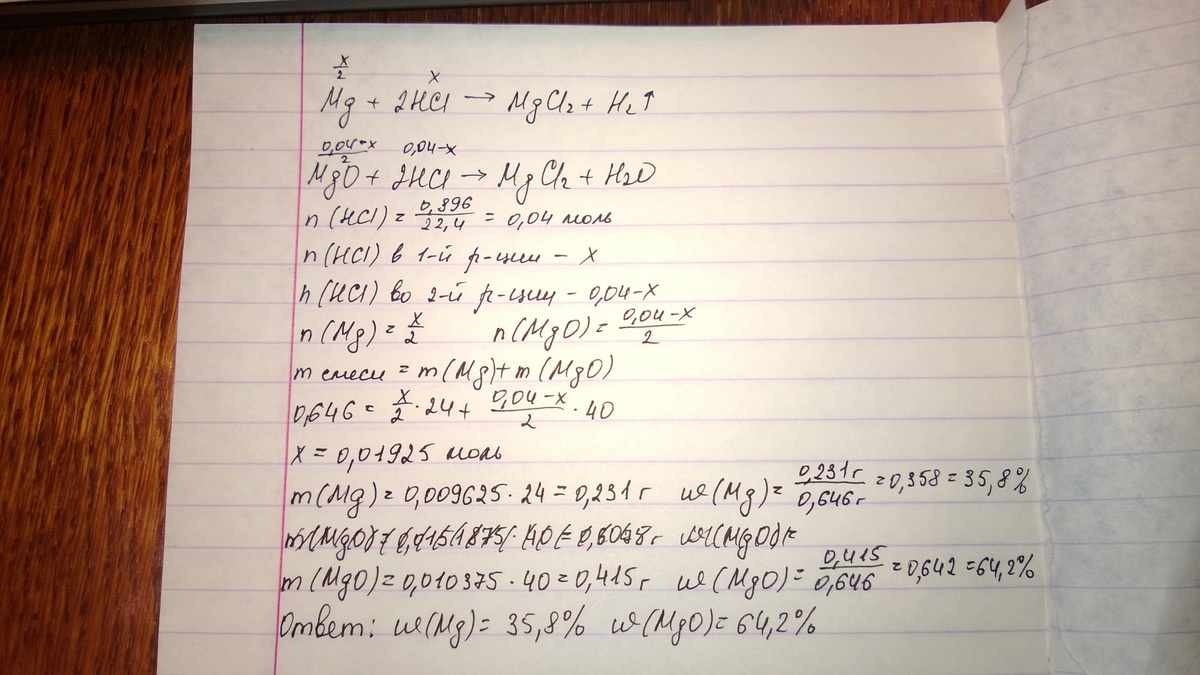 x/2 x
Mg + 2HCl → MgCl2 + H2↑
0,04-x/2 0,04-x
MgO + 2HCl → MgCl2 + H2O
n(HCl) = 0,896/22,4 = 0,04 моль
n(HCl) в 1-й р-ции - x
n(HCl) во 2-й р-ции - 0,04-x
n(Mg) = x/2 n(MgO) = 0,04-x/2
m смеси = m(Mg) + m(MgO)
0,646 = x/2 · 24 + 0,04-x/2 · 40
x = 0,01925 моль
m(Mg) = 0,009625 · 24 = 0,231 г w(Mg) = 0,231 г/0,646 г = 0,358 = 35,8%
m(MgO) = · 40 = г w(MgO) =
m(MgO) = 0,010375 · 40 = 0,415 г w(MgO) = 0,415/0,646 = 0,642 = 64,2%
Ответ: w(Mg) = 35,8% w(MgO) = 64,2%